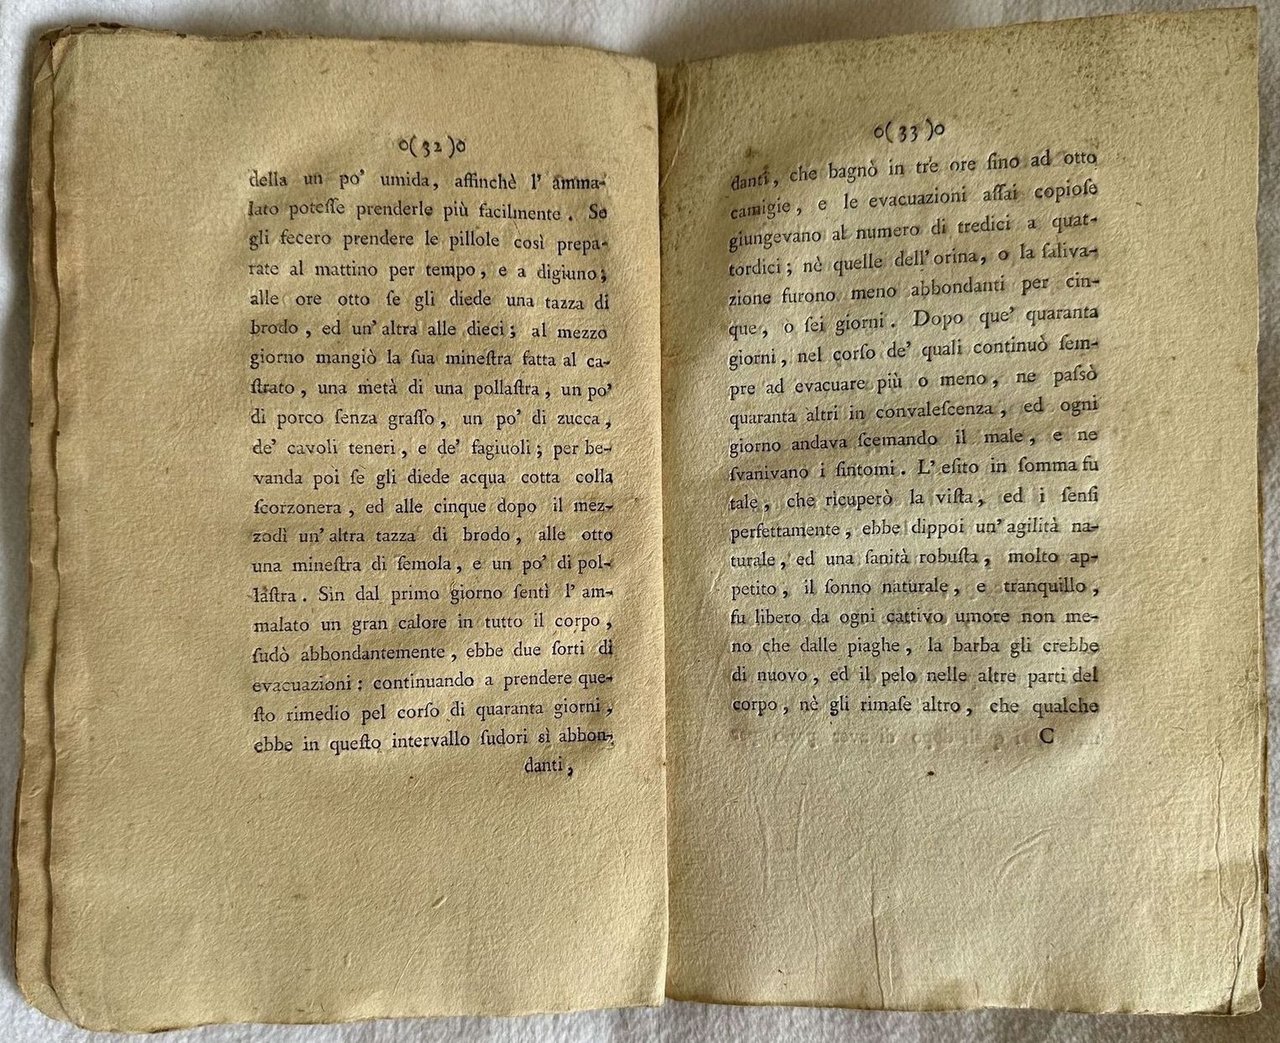 o( 32 )o
della un po' umida, affinchè l' amma-
lato poteſſe prenderle più facilmente. Se
gli fecero prendere le pillole così prepa-
rate al mattino per tempo, e a digiuno;
alle ore otto ſe gli diede una tazza di
brodo, ed un' altra alle dieci; al mezzo
giorno mangiò la ſua mineſtra fatta al ca-
ſtrato, una metà di una pollaſtra, un po'
di porco ſenza graſſo, un po' di zucca,
de' cavoli teneri, e de' fagiuoli; per be-
vanda poi ſe gli diede acqua cotta colla
ſcorzonera, ed alle cinque dopo il mez-
zodì un' altra tazza di brodo, alle otto
una mineſtra di ſemola, e un po' di pol-
laſtra. Sin dal primo giorno ſentì l' am-
malato un gran calore in tutto il corpo,
ſudò abbondantemente, ebbe due ſorti di
evacuazioni: continuando a prendere que-
ſto rimedio pel corſo di quaranta giorni,
ebbe in queſto intervallo ſudori sì abbon-
danti,
o( 33 )o
danti, che bagnò in tre ore ſino ad otto
camigie, e le evacuazioni aſſai copioſe
giungevano al numero di tredici a quat-
tordici; nè quelle dell' orina, o la ſaliva-
zione furono meno abbondanti per cin-
que, o ſei giorni. Dopo que' quaranta
giorni, nel corſo de' quali continuò ſem-
pre ad evacuare più o meno, ne paſsò
quaranta altri in convaleſcenza, ed ogni
giorno andava ſcemando il male, e ne
ſvanivano i ſintomi. L' eſito in ſomma fu
tale, che ricuperò la viſta, ed i ſenſi
perfettamente, ebbe dippoi un' agilità na-
turale, ed una ſanità robuſta, molto ap-
petito, il ſonno naturale, e tranquillo,
fu libero da ogni cattivo umore non me-
no che dalle piaghe, la barba gli crebbe
di nuovo, ed il pelo nelle altre parti del
corpo, nè gli rimaſe altro, che qualche
C